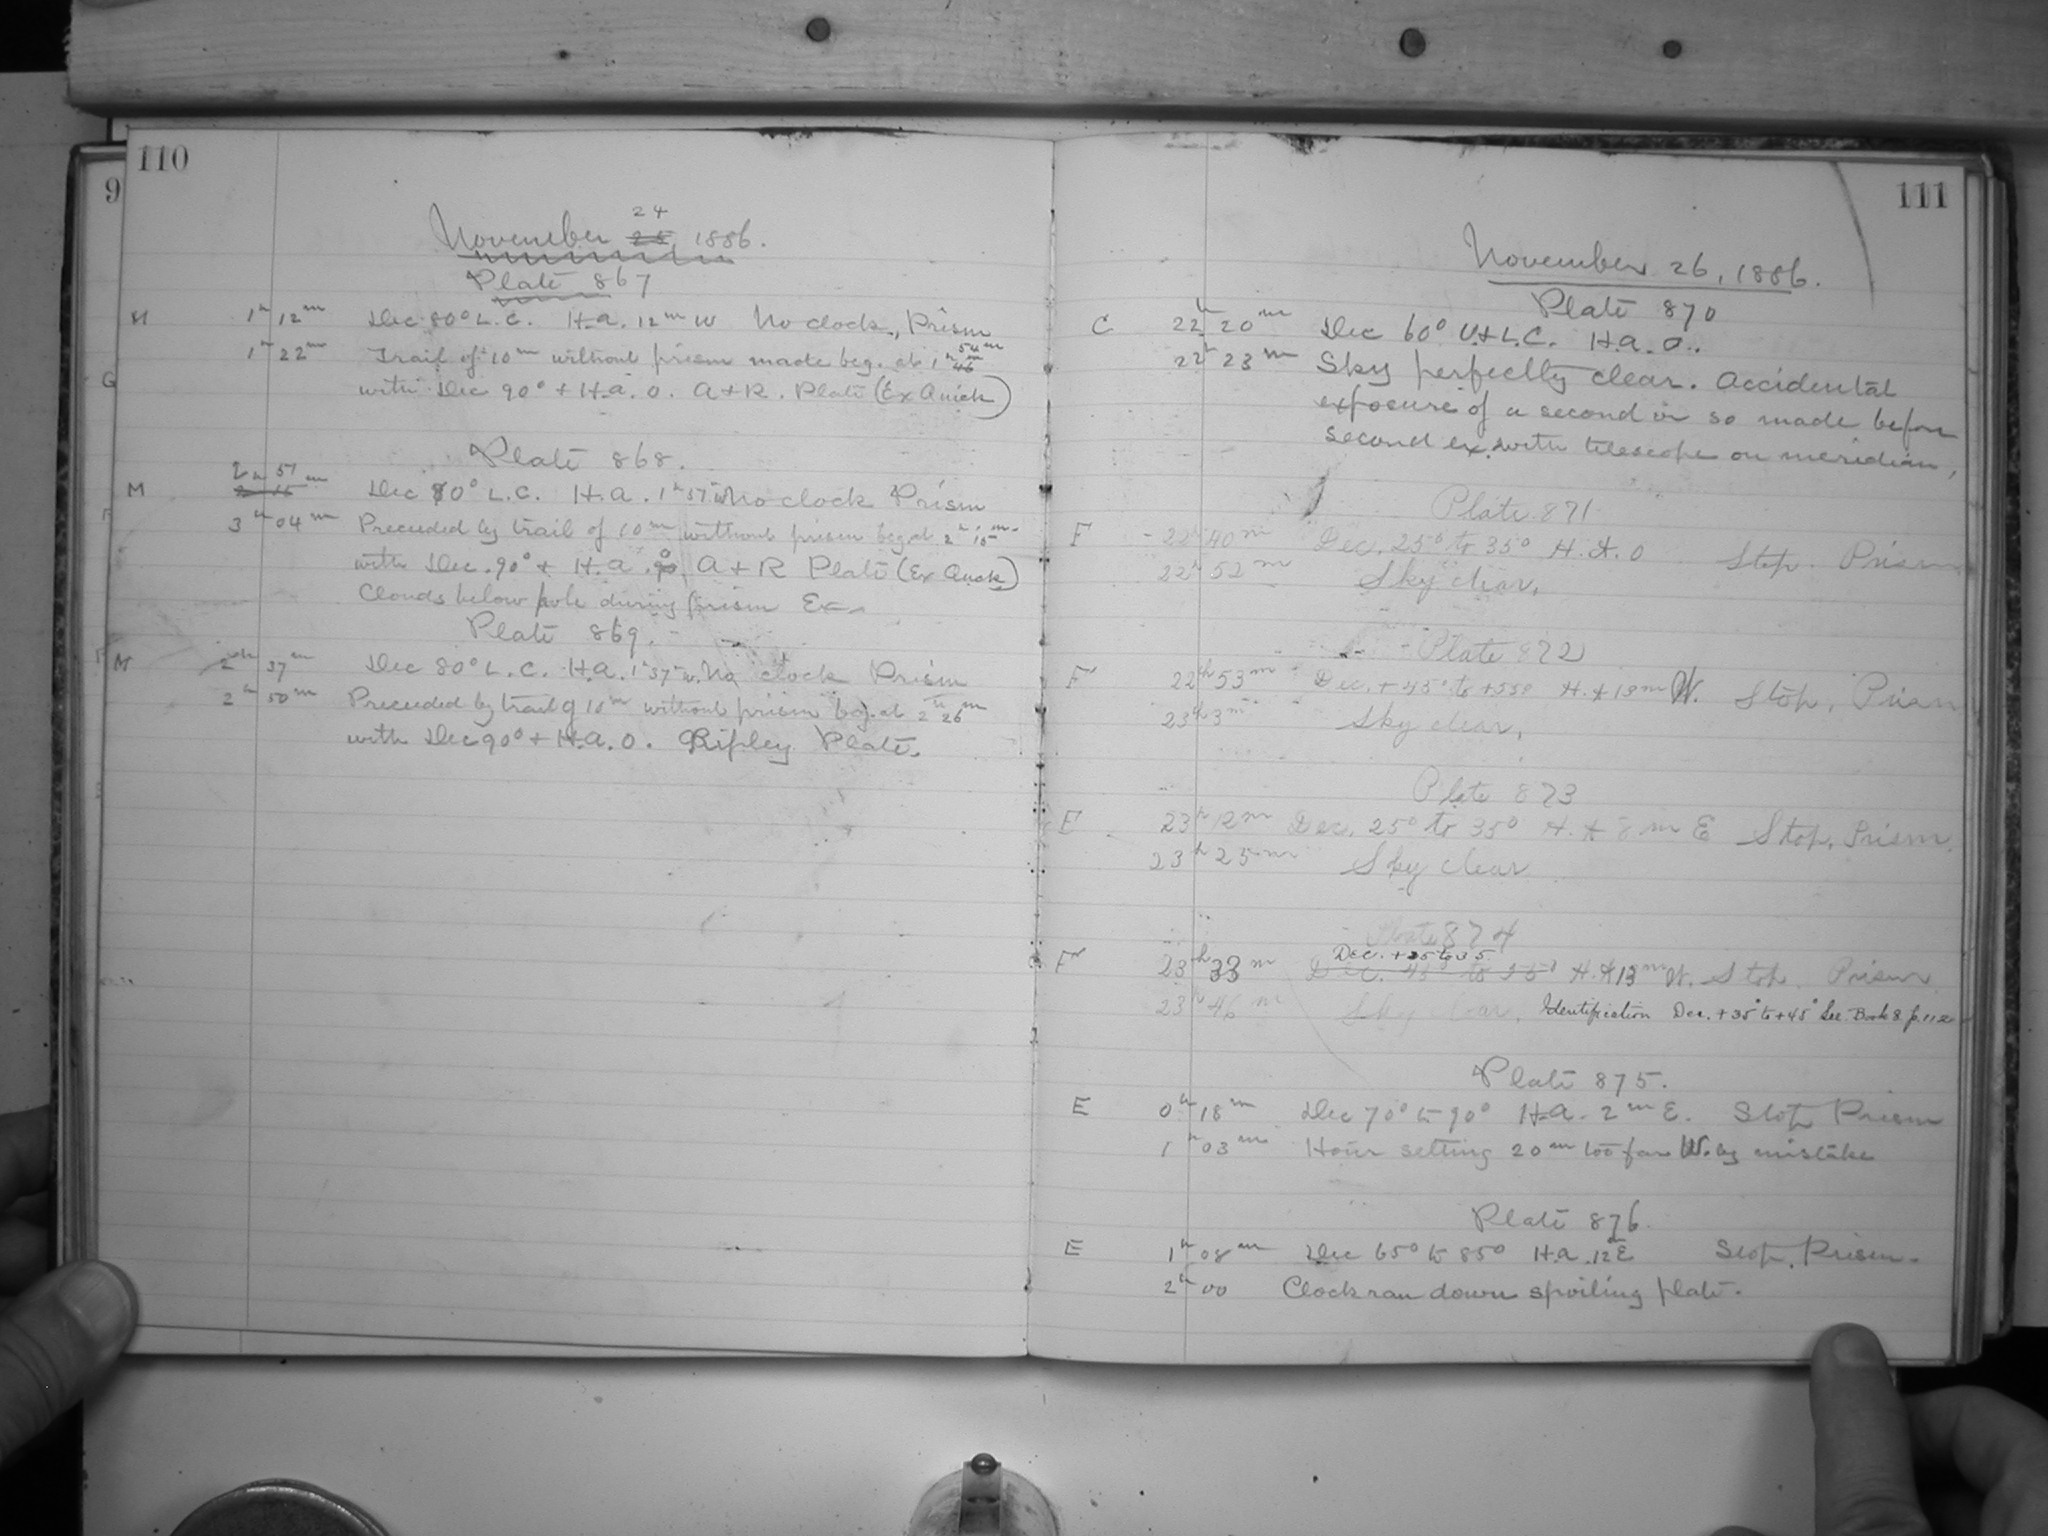 110
9
November 24 1886.
Plate 867
M 1h 12m Dec 80° L.C. H.a. 12m W No clock, Prism
1h 22m Trail of 10m without prism made beg. at 1h 54m
with Dec 90° + H.a. 0. A+R. Plate (Ex Quick)
Plate 868.
M 2h 51m Dec 80° L.C. H.a. 1h 37m W No clock Prism
3h 04m Preceeded by trail of 10m without prism beg at 2h 15m
with Dec. 90° + H.a. 0. A+R Plate (Ex Quick)
Clouds below pole during prism Ex.
Plate 869.
M 2h 37m Dec 80° L.C. H.a. 1h 37m w. No clock Prism
2h 50m Preceeded by trail of 10m without prism beg. at 2h 26m
with Dec 90° + H.a. 0. Ripley Plate.
G
F
111
November 26, 1886.
Plate 870
C 22h 20m Dec 60° U.+L.C. H.a. 0.
22h 23m Sky perfectly clear. Accidental
exposure of a second or so made before
second ex. with telescope on meridian,
Plate 871
F 22h 40m Dec. 25° to 35° H.A. 0 Stop. Prism
22h 52m Sky clear,
Plate 872
F 22h 53m Dec. +45° to +55° H.A 13m W. Stop, Prism
23h 3m Sky clear,
Plate 873
E 23h 12m Dec. 25° to 35° H.A 8m E Stop, Prism.
23h 25m Sky clear
Plate 874
Dec. +25 to 35
F 23h 33m Dec. 45° to 35° H.A 13m W. Stop. Prism.
23h 46m Sky clear. Identification Dec. +35° to +45° See Book 8 p. 112
Plate 875.
E 0h 18m Dec 70° to 90° H.a. 2m E. Stop Prism
1h 03m Hour setting 20m too far W. by mistake
Plate 876.
E 1h 08m Dec 65° to 85° H.a. 12m E Stop. Prism.
2h 00 Clock ran down spoiling plate.